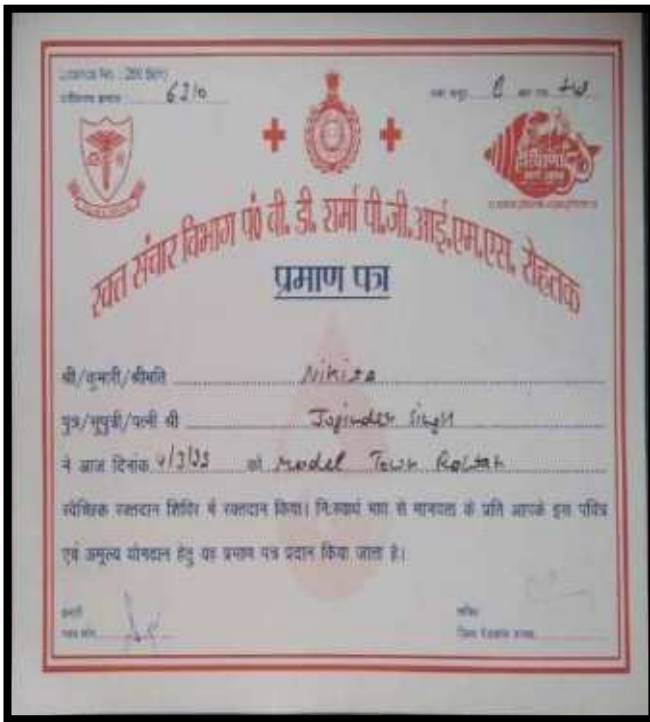 Licence No. : 286 B(H)
पंजीकरण क्रमांक 6210
रक्त समूह
रक्त संचार विभाग पं0 बी. डी. शर्मा पी.जी.आई.एम.एस. रोहतक
प्रमाण पत्र
श्री/कुमारी/श्रीमति Nikita
पुत्र/सुपुत्री/पत्नी श्री Joginder Singh
ने आज दिनांक को Model Town Rohtak
स्वैच्छिक रक्तदान शिविर में रक्तदान किया। नि:स्वार्थ भाव से मानवता के प्रति आपके इस पवित्र
एवं अमूल्य योगदान हेतु यह प्रमाण पत्र प्रदान किया जाता है।
प्रभारी
सचिव
रक्त कोष